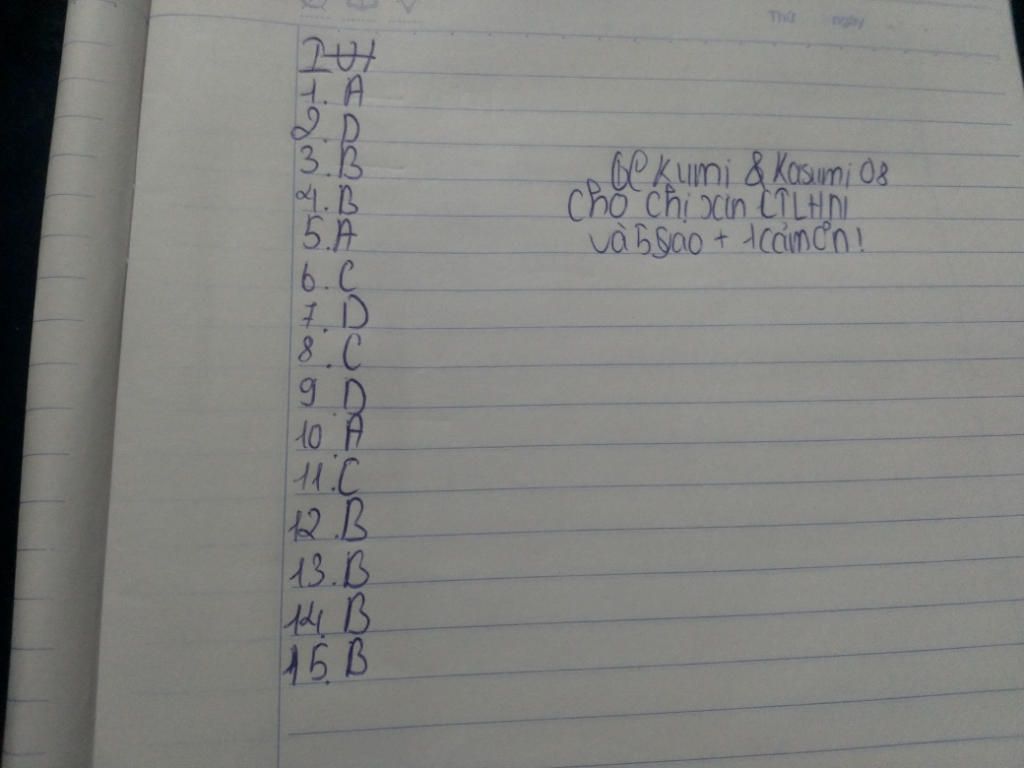 Thứ ngày
1. A
2. D
3. B
4. B
5. A
6. C
7. D
8. C
9. D
10. A
11. C
12. B
13. B
14. B
15. B
Kumi & Kasumi 08
Cho chị xin CTLHN
và 5 sao + 1 cảm ơn!